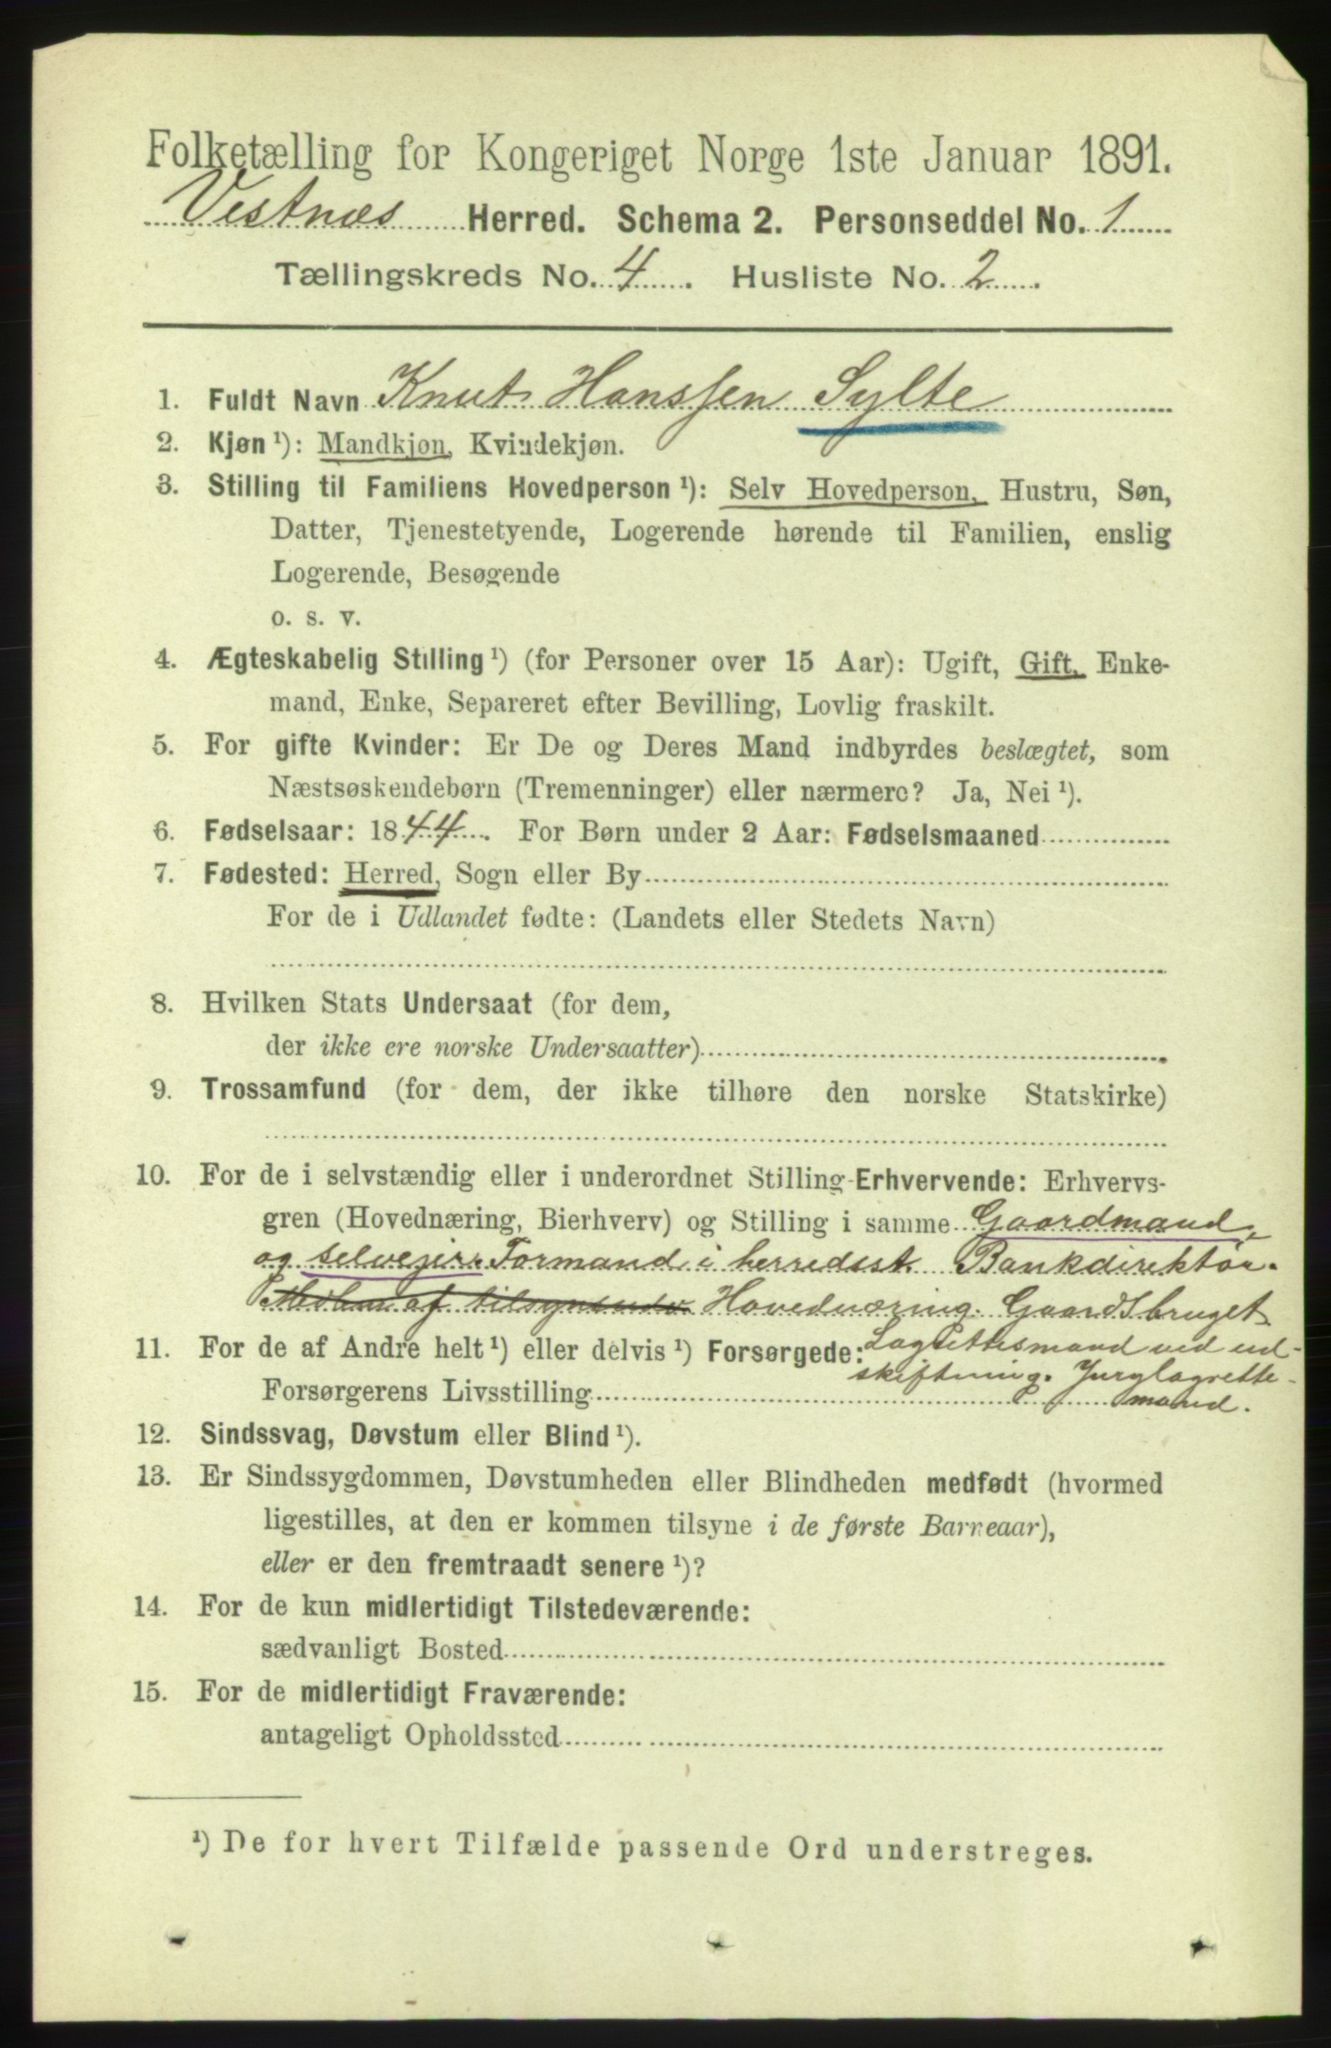 Folketælling for Kongeriget Norge 1ste Januar 1891.
Vestnæs Herred. Schema 2. Personseddel No. 1
Tællingskreds No. 4. Husliste No. 2.
1. Fuldt Navn Knut Hanssen Sylte
2. Kjøn ¹): Mandkjøn, Kvindekjøn.
3. Stilling til Familiens Hovedperson ¹): Selv Hovedperson, Hustru, Søn,
Datter, Tjenestetyende, Logerende hørende til Familien, enslig
Logerende, Besøgende
o. s. v.
4. Ægteskabelig Stilling ¹) (for Personer over 15 Aar): Ugift, Gift, Enke-
mand, Enke, Separeret efter Bevilling, Lovlig fraskilt.
5. For gifte Kvinder: Er De og Deres Mand indbyrdes beslægtet, som
Næstsøskendebørn (Tremenninger) eller nærmere? Ja, Nei ¹).
6. Fødselsaar: 1844. For Børn under 2 Aar: Fødselsmaaned
7. Fødested: Herred, Sogn eller By
For de i Udlandet fødte: (Landets eller Stedets Navn)
8. Hvilken Stats Undersaat (for dem,
der ikke ere norske Undersaatter)
9. Trossamfund (for dem, der ikke tilhøre den norske Statskirke)
10. For de i selvstændig eller i underordnet Stilling Erhvervende: Erhvervs-
gren (Hovednæring, Bierhverv) og Stilling i samme Gaardmand,
og selvejer. Formand i herredsst. Bankdirektør.
Medlem af tilsynsudv. Hovednæring. Gaardsbruget
11. For de af Andre helt ¹) eller delvis ¹) Forsørgede: Lagrettesmand ved ud-
skiftning. Jurylagrette-
Forsørgerens Livsstilling mand.
12. Sindssvag, Døvstum eller Blind ¹).
13. Er Sindssygdommen, Døvstumheden eller Blindheden medfødt (hvormed
ligestilles, at den er kommen tilsyne i de første Barneaar),
eller er den fremtraadt senere ¹)?
14. For de kun midlertidigt Tilstedeværende:
sædvanligt Bosted
15. For de midlertidigt Fraværende:
antageligt Opholdssted
¹) De for hvert Tilfælde passende Ord understreges.